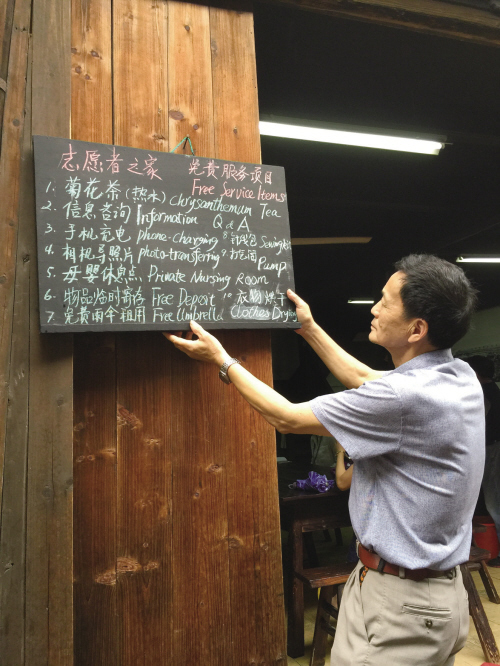 志愿者之家 免费服务项目
Free Service Items
1. 菊花茶(热水) Chrysanthemum Tea
2. 信息咨询 Information Q&A
3. 手机充电 phone-charging 8 针线包 Sewing
4. 相机导照片 photo-transferring 9 打气筒 Pump
5. 母婴休息点 Private Nursing Room
6. 物品临时寄存 Free Deposit 10 衣物烘干
7 免费雨伞租用 Free Umbrella Clothes Drying